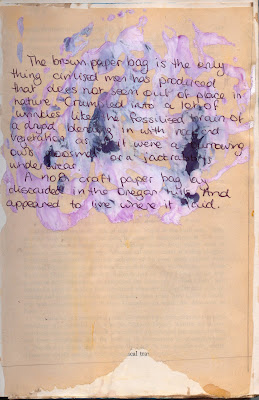 The brown paper bag is the only
thing civilised man has produced
that does not seem out of place in
nature. Crumpled into a lot of
wrinkles like the fossilised brain of
a dryad blending in with
vegetation as it were a burrowing
owl or a jackrabbit
underwear.
A No 8 craft paper bag lay
discarded in the Oregon hills And
appeared to live where it laid.
ical tra